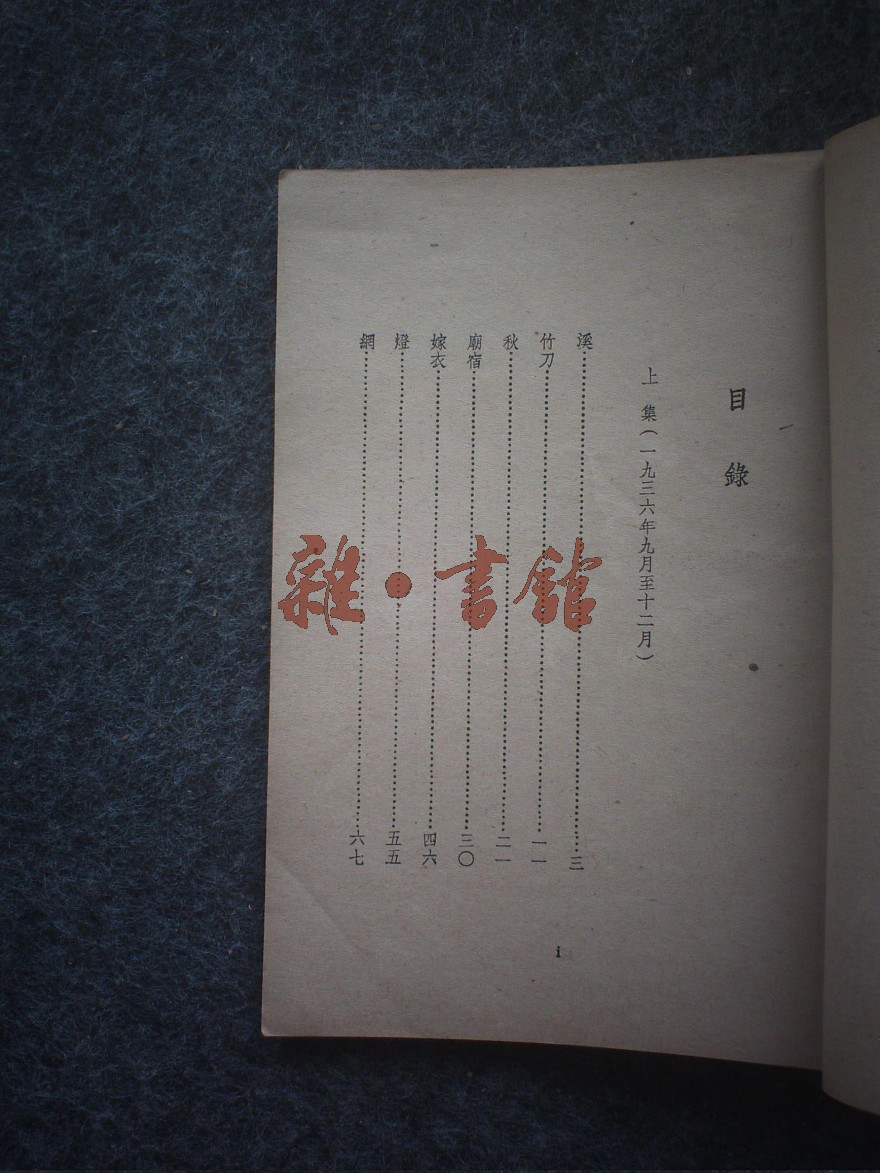 目錄
上集(一九三六年九月至十二月)
溪…………三
竹刀…………一一
秋…………二一
廟宿…………三〇
嫁衣…………四六
燈…………五五
網…………六七
i
雜·書館